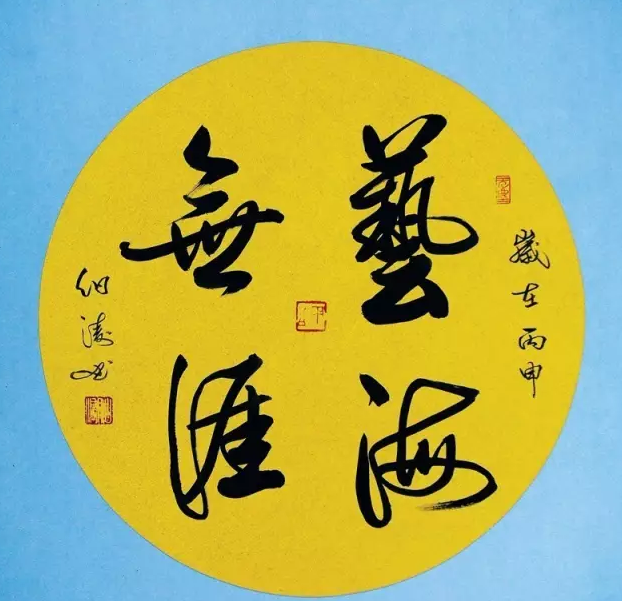 藝海
無涯
歲在丙申
細濤書